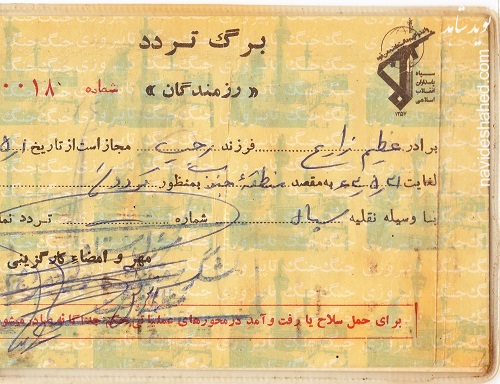 برگ تردد
سپاه
پاسداران
انقلاب
اسلامی
۱۳۵۷
« رزمندگان » شماره ۰۰۱۸
برادر عظیم زارع فرزند رجب مجاز است از تاریخ
لغایت به مقصد منطقه جنوب بمنظور تردد
با وسیله نقلیه سپاه شماره تردد نما
مهر و امضاء کارگزینی
برای حمل سلاح یا رفت و آمد در محورهای عملیاتی برگ جداگانه صادر میشو
نوید شاهد
navideshahed.com